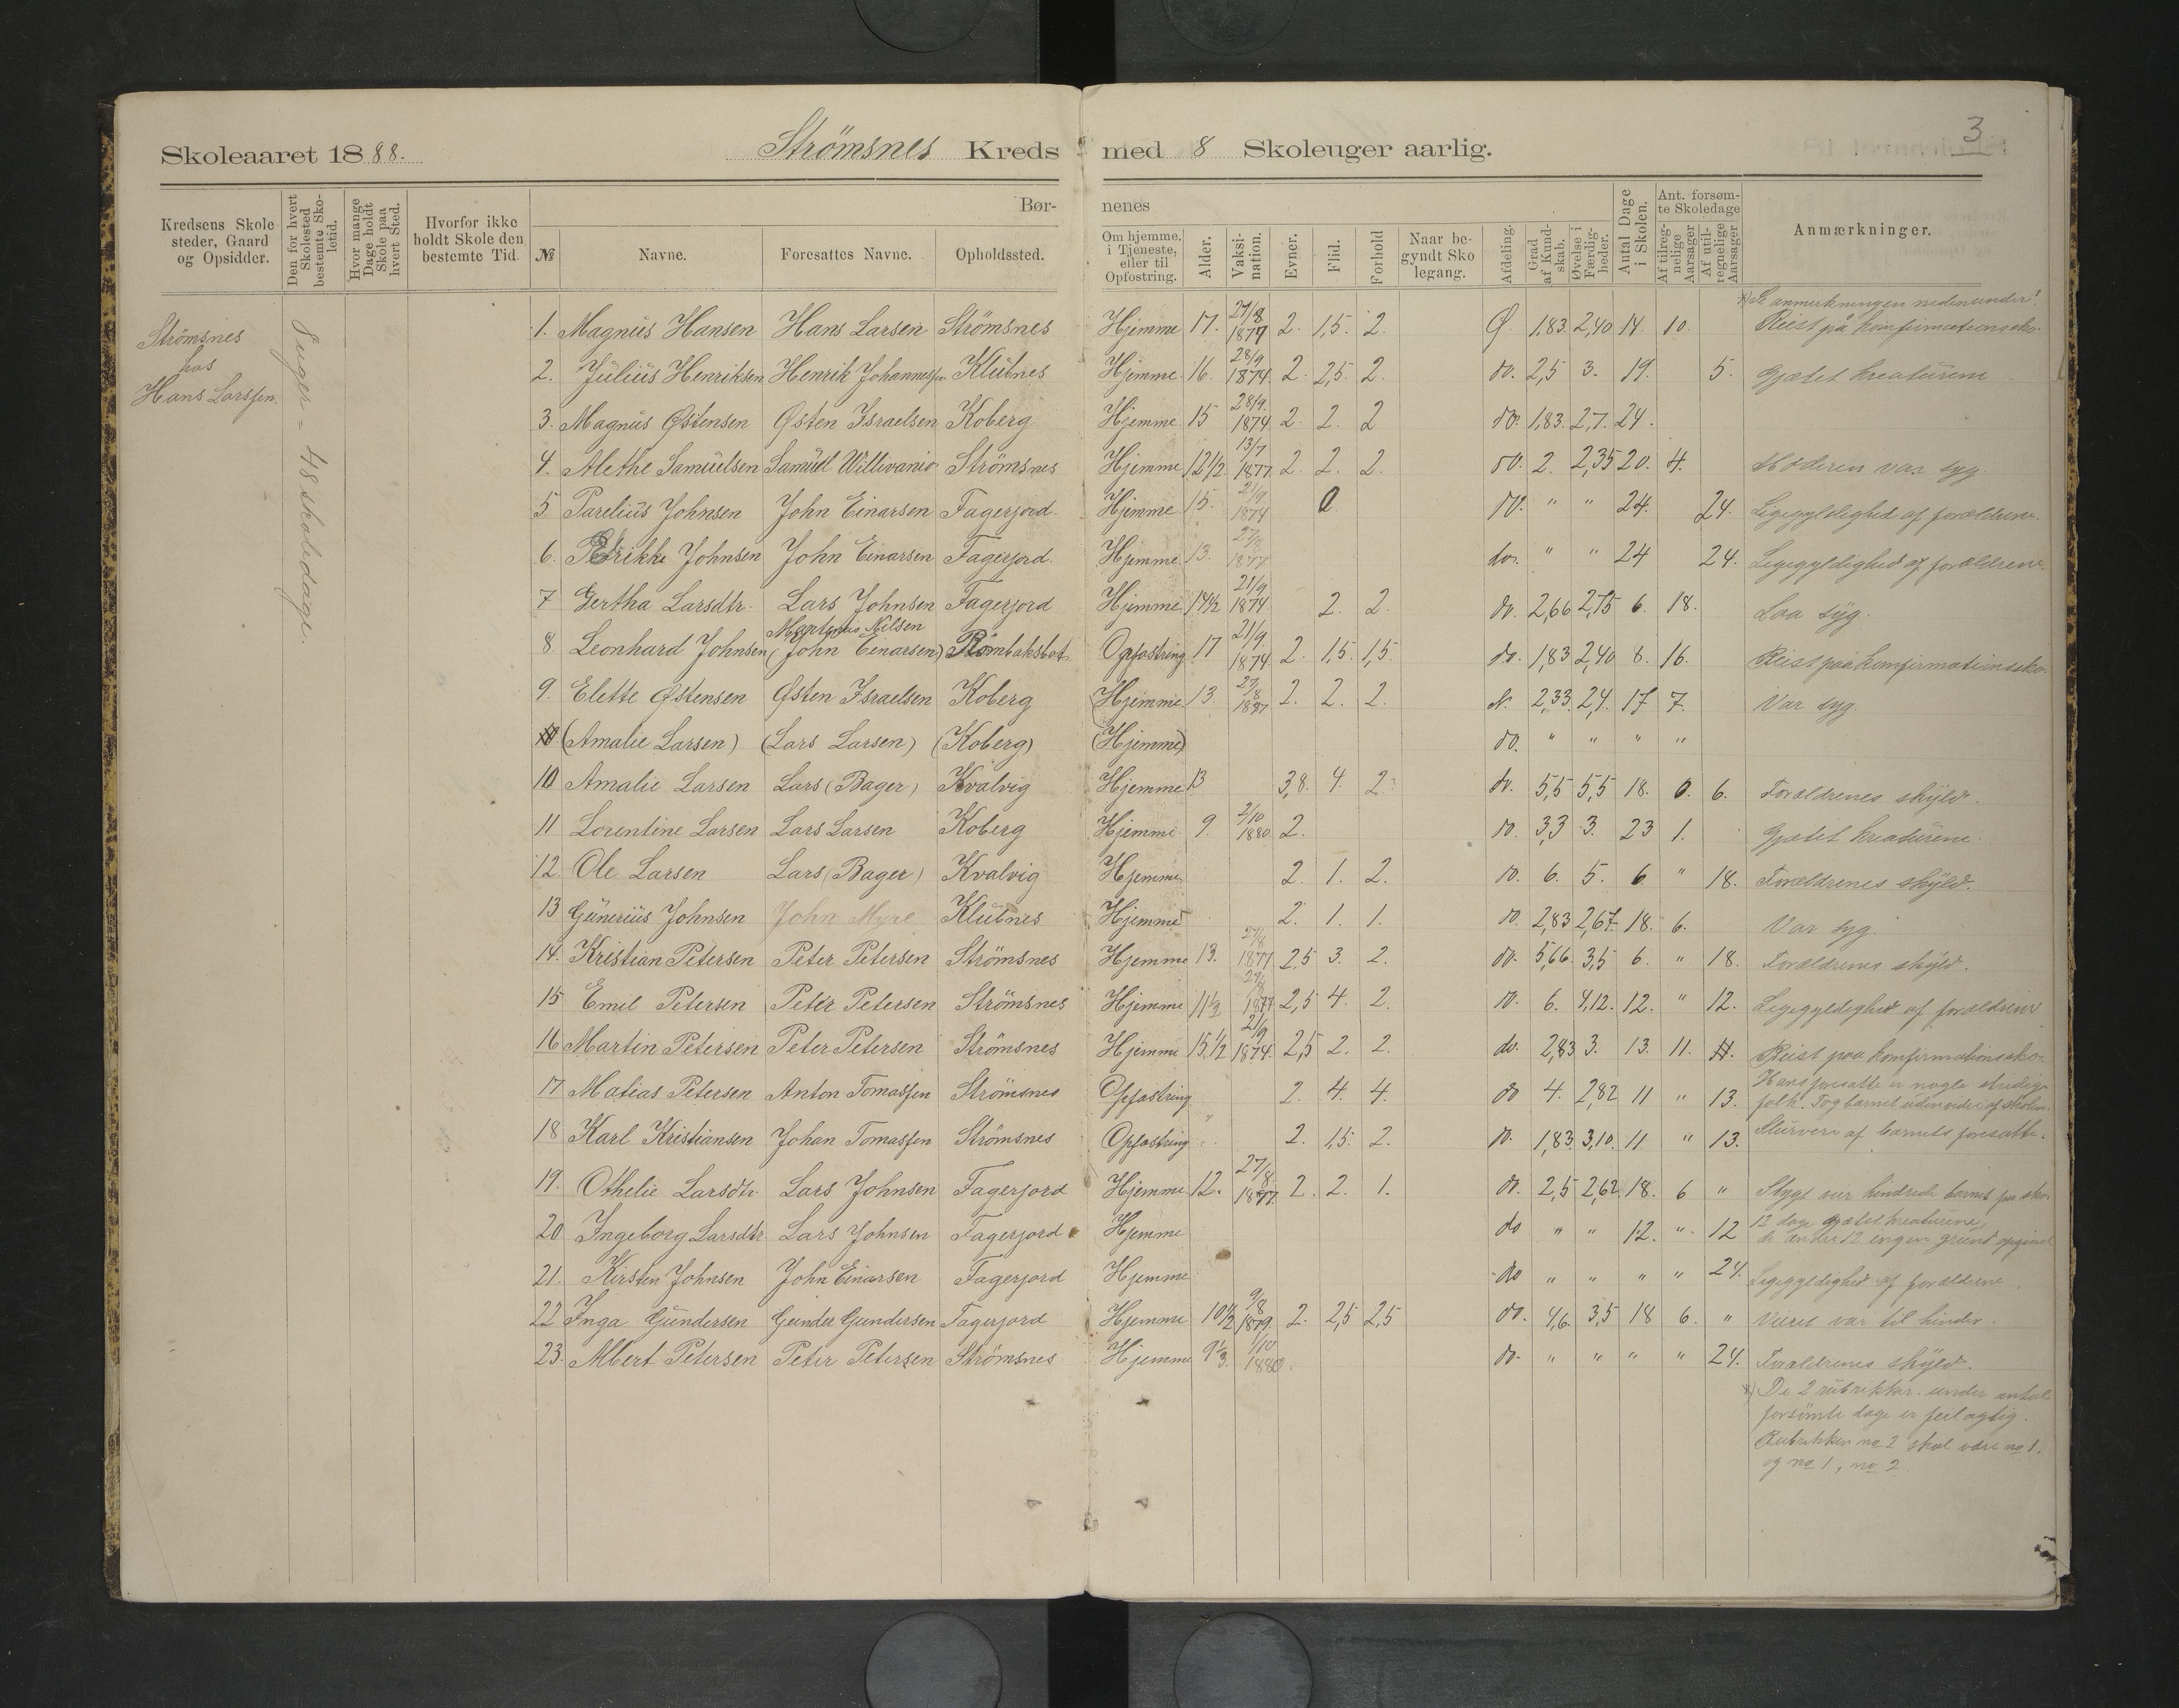 3
Skoleaaret 1888. Strömsnes Kreds med 8 Skoleuger aarlig.
Kredsens Skolesteder, Gaard og Opsidder. Den for hvert Skolested bestemte Skoletid. Hvor mange Dage holdt Skole paa hvert Sted. Hvorfor ikke holdt Skole den bestemte Tid. Børnenes
№ Navne. Foresattes Navne. Opholdssted. Om hjemme, i Tjeneste, eller til Opfostring. Alder. Vaksination. Evner. Flid. Forhold Naar begyndt Skolegang. Afdeling. Grad af Kundskab. Øvelse i Færdigheder. Antal Dage i Skolen. Ant. forsømte Skoledage Af tilregnelige Aarsager Af utilregnelige Aarsager Anmærkninger.
Strömsnes
hos
Hans Larssen.
8 uger = 48 skoledage.
*) Se anmerkningen nedenunder!
1. Magnus Hansen Hans Larsen Strömsnes Hjemme 17. 27/8 1877 2. 1,5. 2. Ø. 1,83. 2,40 14. 10. Reist på konfirmationssko.
2. Julius Henriksen Henrik Johannessen Klubnes Hjemme 16. 28/9 1874. 2. 2,5. 2. do. 2,5 3. 19. 5. Gjætet kreaturene
3. Magnus Østensen Østen Israelsen Koberg Hjemme 15 28/9. 1874. 2. 2. 2 do. 1,83. 2,7. 24.
4. Alethe Samuelsen Samuel Strömsnes Hjemme 12 1/2. 13/7 1877. 2. 2. 2. do. 2. 2,35 20. 4. Moderen var syg.
5 Parelius Johnsen John Einarsen Fagerjord. Hjemme 15. 21/9. 1874 0. do. " " 24. 24. Legegyldighed af forældrene.
6. Petrikke Johnsen John Einarsen Fagerjord. Hjemme 13. 27/8 1877 do. " " 24 24. Legegyldighed af forældrene.
7 Gertha Larsdtr. Lars Johnsen Fagerjord Hjemme 14 1/2 21/9 1874 2. 2. do. 2,66 2,75 6. 18. Laa syg.
Martinus Nilsen
8. Leonhard Johnsen (John Einarsen) Rombaksbot Opfostring 17 21/9. 1874. 2. 1,5. 1,5. do. 1,83 2,40 8. 16. Reist paa konfirmationssko.
9. Elette Østensen Østen Israelsen Koberg Hjemme 13. 27/8 1877 2. 2. 2. do. 2,33. 2,4. 17 7. Var syg.
(Amalie Larsen) (Lars Larsen) (Koberg) (Hjemme) do. " " " "
10 Amalie Larsen Lars (Bager) Kvalvig Hjemme 13 3,8. 4. 2. do. 5,5 5,5 18. 0. 6. Forældrenes skyld.
11 Lorentine Larsen Lars Larsen Koberg Hjemme 9. 2/10 1880 2. do. 3,3 3. 23 1. Gjætet kreaturene
12. Ole Larsen Lars (Bager) Kvalvig Hjemme 2. 1. 2. do. 6. 5. 6. " 18. Forældrenes skyld.
13 Gunerius Johnsen John Myre Klubnes Hjemme 2. 1. 1. do. 2,83 2,67. 18. 6. Var syg.
14. Kristian Petersen Peter Petersen Strömsnes Hjemme 13. 27/8 1877 2,5 3. 2. do. 5,66. 3,5 6. " 18. Forældrenes skyld.
15 Emil Petersen Peter Petersen Strömsnes Hjemme 11 1/2 27/8 1877 2,5 4. 2. do. 6. 4,12. 12. " 12. Legegyldighed af forældrene
16 Martin Petersen Peter Petersen Strömsnes Hjemme 15 1/2 21/9 1874. 2,5 2. 2. do. 2,83 3. 13. 11. 11. Reist paa konfirmationssko.
17 Matias Petersen Anton Tomassen Strömsnes Opfostring 2. 4. 4. do 4. 2,82 11 " 13. Hans foresatte er nogle stridige folk. Tog barnet uden videre af skolen.
18 Karl Kristiansen Johan Tomassen Strömsnes Opfostring 2. 1,5. 2. do. 1,83. 3,10. 11 " 13. Skurveri af barnets foresatte.
19. Othelie Larsdtr. Lars Johnsen Fagerjord Hjemme 12. 27/8. 1877. 2. 2. 1. do. 2,5 2,62 18. 6 " Stygt veir hindrede barnet fra sko.
20 Ingeborg Larsdtr Lars Johnsen Fagerjord Hjemme do " " 12. " 12 12 dage gjætet kreaturene, de andre 12 ingen grund opgivet
21. Kirsten Johnsen John Einarsen Fagerjord Hjemme do " " " " 24. Legegyldighed af forældrene.
22 Inga Gundersen Gunder Gundersen Fagerjord Hjemme 10 1/2 9/8 1879. 2. 2,5 2,5 do. 4,6. 3,5 18 6. " Veiret var til hinder.
23. Albert Petersen Peter Petersen Strömsnes Hjemme 9 1/3. 1/10 1880. do. " " " " 24. Forældrenes skyld.
*) De 2 rubrikker under antal
forsömte dage er feilagtig.
Rubrikken no 2 skal være no 1,
og no 1, no 2.